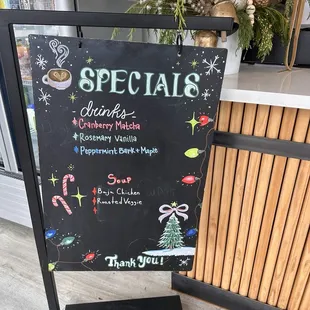 SPECIALS
drinks
Cranberry Matcha
Rosemary Vanilla
Peppermint Bark + Maple
Soup
Baja Chicken
Roasted Veggie
Thank You!